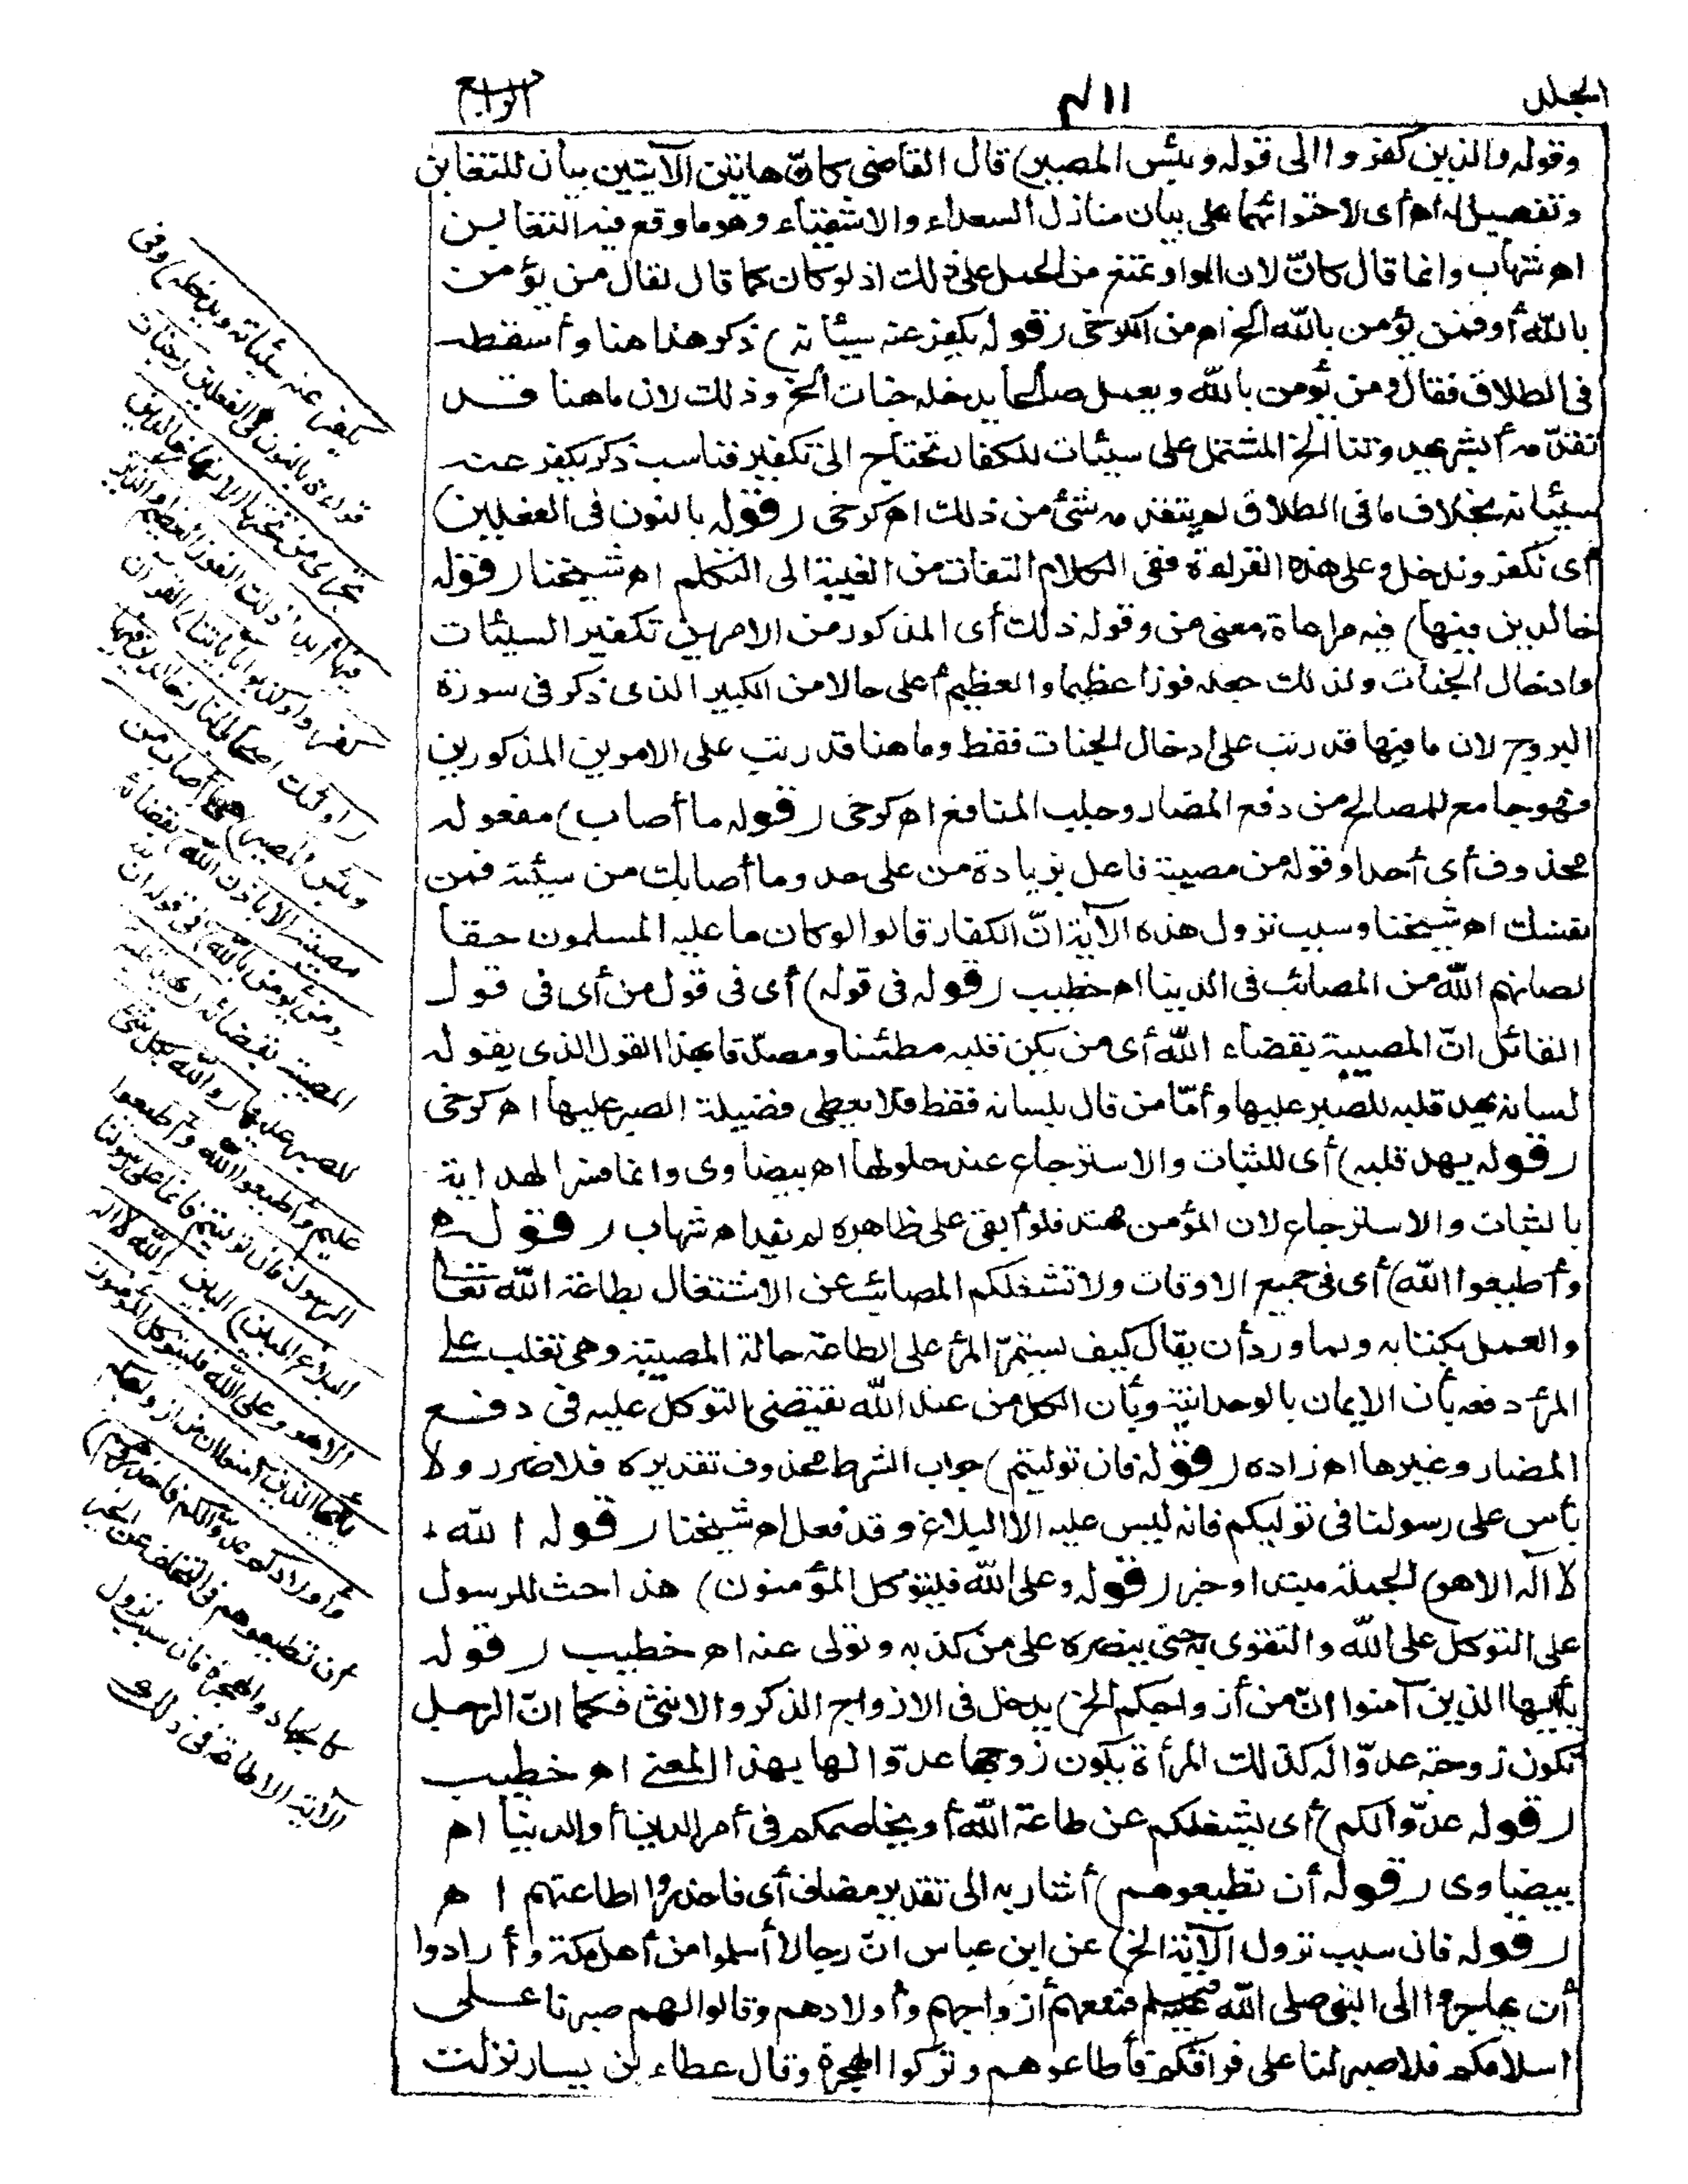 المجلد
٤١١
الرابع
وقوله والذين كفروا الى قوله وبئس المصير) قال القاضى كانّ هاتين الآيتين بيان للتغابن
وتفصيل له اه أى لاحتوائهما على بيان منازل السعداء والاشقياء وهو ما وقع فيه التغابن
اه شهاب وانما قال كانّ لان الواو تمنع من الحمل على ذلك اذ لو كان كما قال لقال من يؤمن
بالله أو فمن يؤمن بالله الخ اه من الكرخى (قوله يكفر عنه سيئاته) ذكر هذا هنا وأسقطه
فى الطلاق فقال ومن يؤمن بالله ويعمل صالحا يدخله جنات الخ وذلك لان ما هنا قد
تقدّمه أبشر يهدوننا الخ المشتمل على سيئات للكفار تحتاج الى تكفير فناسب ذكر يكفر عنه
سيئاته بخلاف ما فى الطلاق لم يتقدمه شئ من ذلك اه كرخى (قوله بالنون فى الفعلين)
أى نكفر وندخل وعلى هذه القراءة ففى الكلام التفات من الغيبة الى التكلم اه شيخنا (قوله
خالدين فيها) فيه مراعاة معنى من وقوله ذلك أى المذكور من الامرين تكفير السيئات
وادخال الجنات ولذلك جعله فوزا عظيما والعظيم أعلى حالا من الكبير الذى ذكر فى سورة
البروج لان ما فيها قد رتب على ادخال الجنات فقط وما هنا قد رتب على الامرين المذكورين
فهو جامع للمصالح من دفع المضار وجلب المنافع اه كرخى (قوله ما أصاب) مفعوله
محذوف أى أحدا وقوله من مصيبة فاعل بزيادة من على حد وما أصابك من سيئة فمن
نفسك اه شيخنا وسبب نزول هذه الآية انّ الكفار قالوا لو كان ما عليه المسلمون حقا
لصانهم الله من المصائب فى الدنيا اه خطيب (قوله فى قوله) أى فى قول من أى فى قول
القائل انّ المصيبة بقضاء الله أى من يكن قلبه مطمئنا ومصدّقا بهذا القول الذى يقوله
لسانه يهد قلبه للصبر عليها وأمّا من قال بلسانه فقط فلا يعطى فضيلة الصبر عليها اه كرخى
(قوله يهد قلبه) أى للثبات والاسترجاع عند حلولها اه بيضاوى وانما فسر الهداية
بالثبات والاسترجاع لان المؤمن مهتد فلو أبقى على ظاهره لم يفد اه شهاب (قوله
وأطيعوا الله) أى فى جميع الاوقات ولا تشغلكم المصائب عن الاشتغال بطاعة الله تعالى
والعمل بكتابه ولما ورد أن يقال كيف يستمرّ المرء على الطاعة حالة المصيبة وهى تغلب على
المرء دفعه بأن الايمان بالوحدانية وبأن الكل من عند الله يقتضى التوكل عليه فى دفع
المضار وغيرها اه زاده (قوله فان توليتم) جواب الشرط محذوف تقديره فلا ضرر ولا
بأس على رسولنا فى توليكم فانه ليس عليه الا البلاغ وقد فعل اه شيخنا (قوله الله
لا اله الا هو) الجملة مبتدا وخبر (قوله وعلى الله فليتوكل المؤمنون) هذا حث للرسول
على التوكل على الله والتقوى به حتى ينصره على من كذبه وتولى عنه اه خطيب (قوله
يأيها الذين آمنوا انّ من أزواجكم الخ) يدخل فى الازواج الذكر والانثى فكما انّ الرجل
تكون زوجته عدوّا له كذلك المرأة يكون زوجها عدوّا لها بهذا المعنى اه خطيب
(قوله عدوّا لكم) أى يشغلكم عن طاعة الله أو يخاصمكم فى أمر الدين أو الدنيا اه
بيضاوى (قوله أن تطيعوهم) أشار به الى تقدير مضاف أى فاحذروا اطاعتهم اه
(قوله فان سبب نزول الآية الخ) عن ابن عباس انّ رجالا أسلموا من أهل مكة وأرادوا
أن يهاجروا الى النبى صلى الله عليه وسلم فمنعهم أزواجهم وأولادهم وقالوا لهم صبرنا على
اسلامكم فلا صبر لنا على فراقكم فأطاعوهم وتركوا الهجرة وقال عطاء بن يسار نزلت
يكفر عنه سيئاته ويدخله) وفى
قراءة بالنون فى الفعلين (جنات
تجرى من تحتها الانهار خالدين
فيها أبدا ذلك الفوز العظيم والذين
كفروا وكذبوا بآياتنا) القرآن
(أولئك أصحاب النار خالدين فيها
وبئس المصير) هى (ما أصاب من
مصيبة الا باذن الله) بقضائه
(ومن يؤمن بالله) فى قوله ان
المصيبة بقضائه (يهد قلبه)
للصبر عليها (والله بكل شئ
عليم وأطيعوا الله وأطيعوا
الرسول فان توليتم فانما على رسولنا
البلاغ المبين) البين (الله لا اله
الا هو وعلى الله فليتوكل المؤمنون
يأيها الذين آمنوا ان من أزواجكم
وأولادكم عدوّا لكم فاحذروهم)
أن تطيعوهم فى التخلف عن الخير
كالجهاد والهجرة فان سبب نزول
الآية الاطاعة فى ذلك